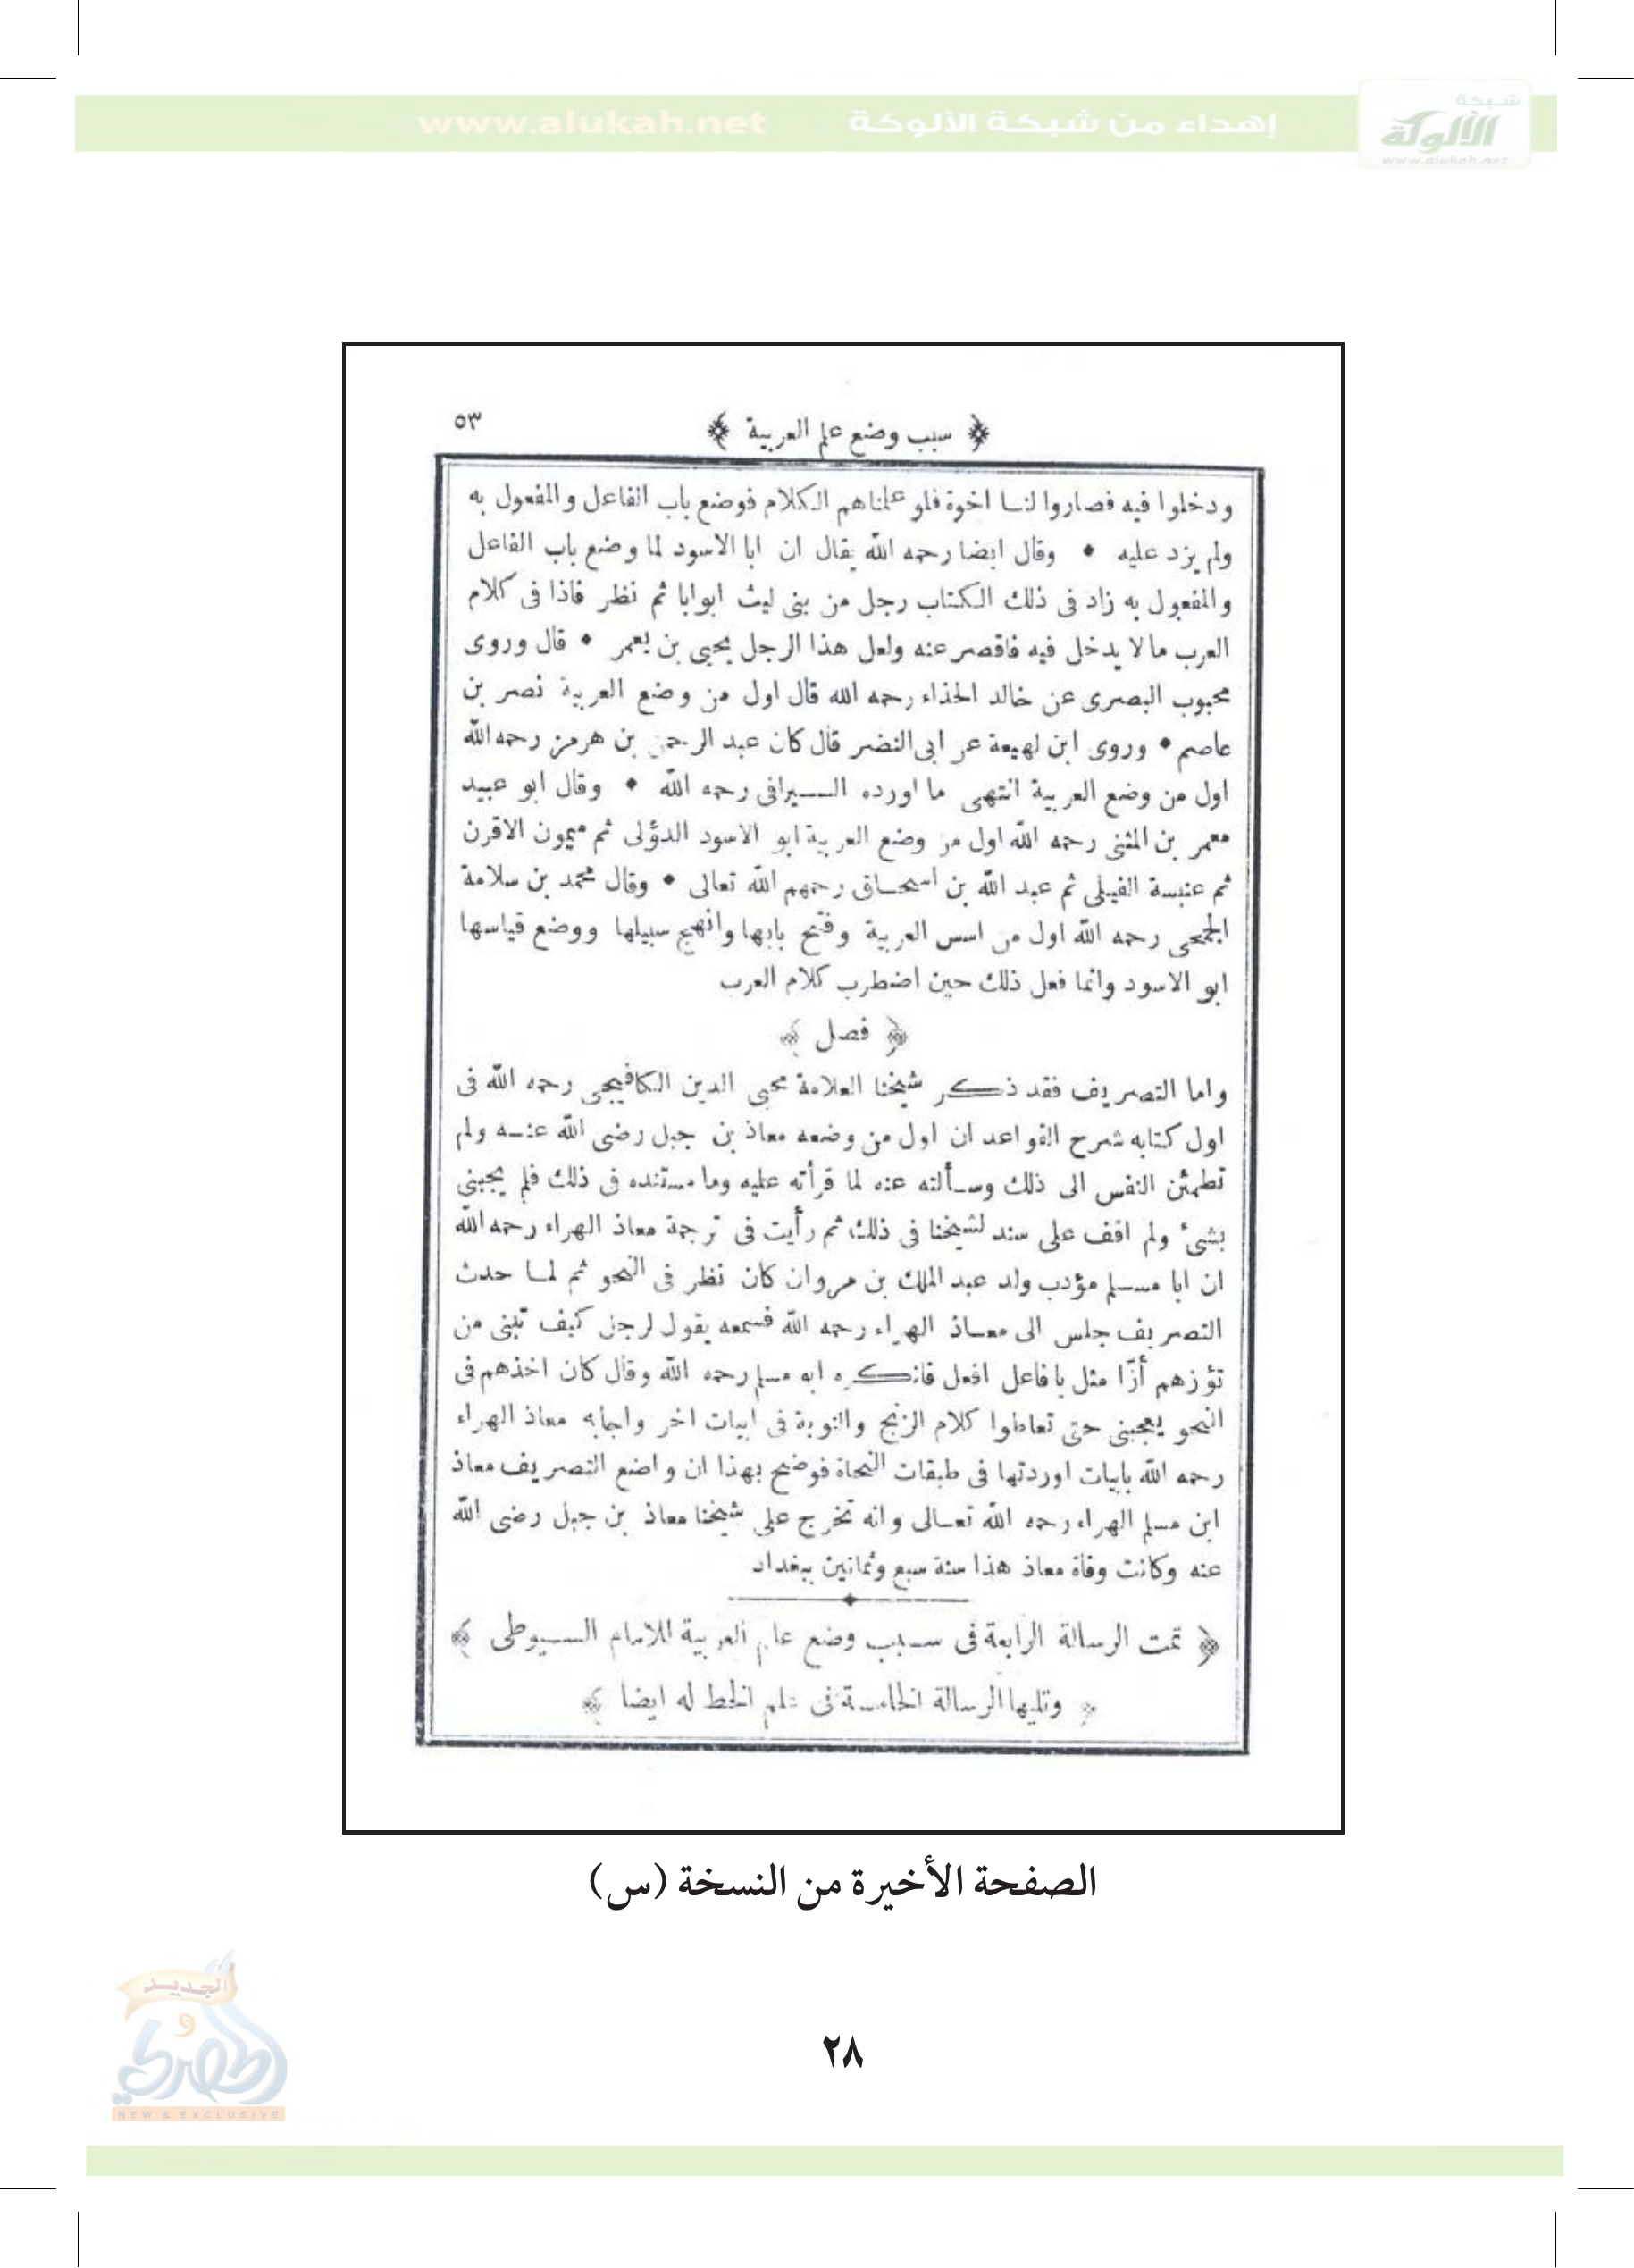 إهداء من شبكة الألوكة www.alukah.net
شبكة
الألوكة
www.alukah.net
﴿ سبب وضع علم العربية ﴾ ٥٣
ودخلوا فيه فصاروا لنا اخوة فلو علمناهم الكلام فوضع باب الفاعل والمفعول به
ولم يزد عليه • وقال ايضا رحمه الله يقال ان ابا الاسود لما وضع باب الفاعل
والمفعول به زاد فى ذلك الكتاب رجل من بنى ليث ابوابا ثم نظر فاذا فى كلام
العرب ما لا يدخل فيه فاقصر عنه ولعل هذا الرجل يحيى بن يعمر • قال وروى
محبوب البصرى عن خالد الحذاء رحمه الله قال اول من وضع العربية نصر بن
عاصم • وروى ابن لهيعة عن ابى النضر قال كان عبد الرحمن بن هرمز رحمه الله
اول من وضع العربية انتهى ما اورده السيرافى رحمه الله • وقال ابو عبيد
معمر بن المثنى رحمه الله اول من وضع العربية ابو الاسود الدؤلى ثم ميمون الاقرن
ثم عنبسة الفيلى ثم عبد الله بن اسحاق رحمهم الله تعالى • وقال محمد بن سلامة
الجمحى رحمه الله اول من اسس العربية وفتح بابها وانهج سبيلها ووضع قياسها
ابو الاسود وانما فعل ذلك حين اضطرب كلام العرب
﴿ فصل ﴾
واما التصريف فقد ذكر شيخنا العلامة محيى الدين الكافيجى رحمه الله فى
اول كتابه شرح القواعد ان اول من وضعه معاذ بن جبل رضى الله عنه ولم
تطمئن النفس الى ذلك وسألته عنه لما قرأته عليه وما مستنده فى ذلك فلم يجبنى
بشىء ولم اقف على سند لشيخنا فى ذلك ثم رأيت فى ترجمة معاذ الهراء رحمه الله
ان ابا مسلم مؤدب ولد عبد الملك بن مروان كان نظر فى النحو ثم لما حدث
التصريف جلس الى معاذ الهراء رحمه الله فسمعه يقول لرجل كيف تبنى من
تؤزهم أزّا مثل يا فاعل افعل فانكره ابو مسلم رحمه الله وقال كان اخذهم فى
النحو يعجبنى حتى تعاطوا كلام الزنج والنوبة فى ابيات اخر واجابه معاذ الهراء
رحمه الله بابيات اوردتها فى طبقات النحاة فوضح بهذا ان واضع التصريف معاذ
ابن مسلم الهراء رحمه الله تعالى وانه تخرج على شيخنا معاذ بن جبل رضى الله
عنه وكانت وفاة معاذ هذا سنة سبع وثمانين ببغداد
﴿ تمت الرسالة الرابعة فى سبب وضع علم العربية للامام السيوطى ﴾
﴿ وتليها الرسالة الخامسة فى علم الخط له ايضا ﴾
الصفحة الأخيرة من النسخة (س)
الجديد
و
الحصري
NEW & EXCLUSIVE
٢٨